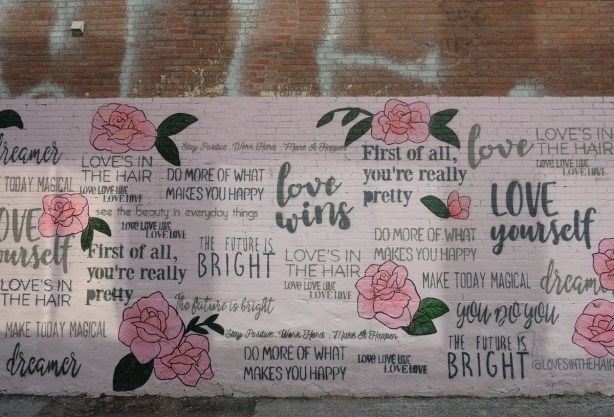 dreamer
LOVE'S IN
THE HAIR
LOVE LOVE LOVE
LOVE LOVE
TODAY MAGICAL
Stay Positive . Work Hard . Make It Happen
DO MORE OF WHAT
MAKES YOU HAPPY
love
wins
First of all,
you're really
pretty
love
LOVE'S IN
THE HAIR
LOVE LOVE LOVE
LOVE LOVE
LOVE
yourself
see the beauty in everyday things
LOVE LOVE LOVE
LOVE LOVE
LOVE
yourself
First of all,
you're really
pretty
THE FUTURE IS
BRIGHT
DO MORE OF WHAT
MAKES YOU HAPPY
LOVE'S IN
THE HAIR
LOVE LOVE LOVE
LOVE LOVE
LOVE'S IN
THE HAIR
MAKE TODAY MAGICAL
dreamer
The future is bright
YOU DO YOU
MAKE TODAY MAGICAL
Stay Positive . Work Hard . Make It Happen
dreamer
DO MORE OF WHAT
MAKES YOU HAPPY
LOVE LOVE LOVE
LOVE LOVE
THE FUTURE IS
BRIGHT
@LOVESINTHEHAIR